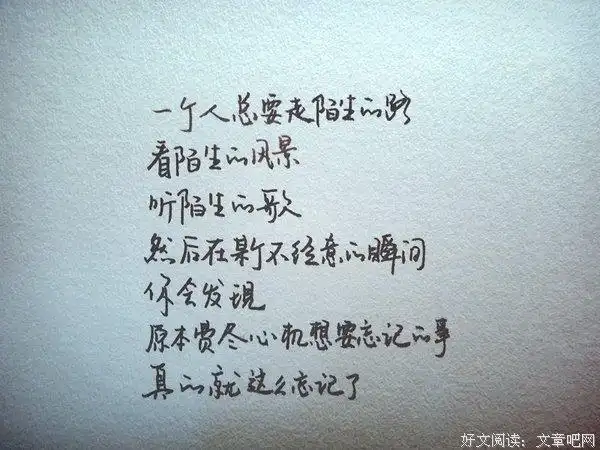 一个人总要走陌生的路
看陌生的风景
听陌生的歌
然后在某个不经意的瞬间
你会发现
原本费尽心机想要忘记的事
真的就这么忘记了
好文阅读：文章吧网